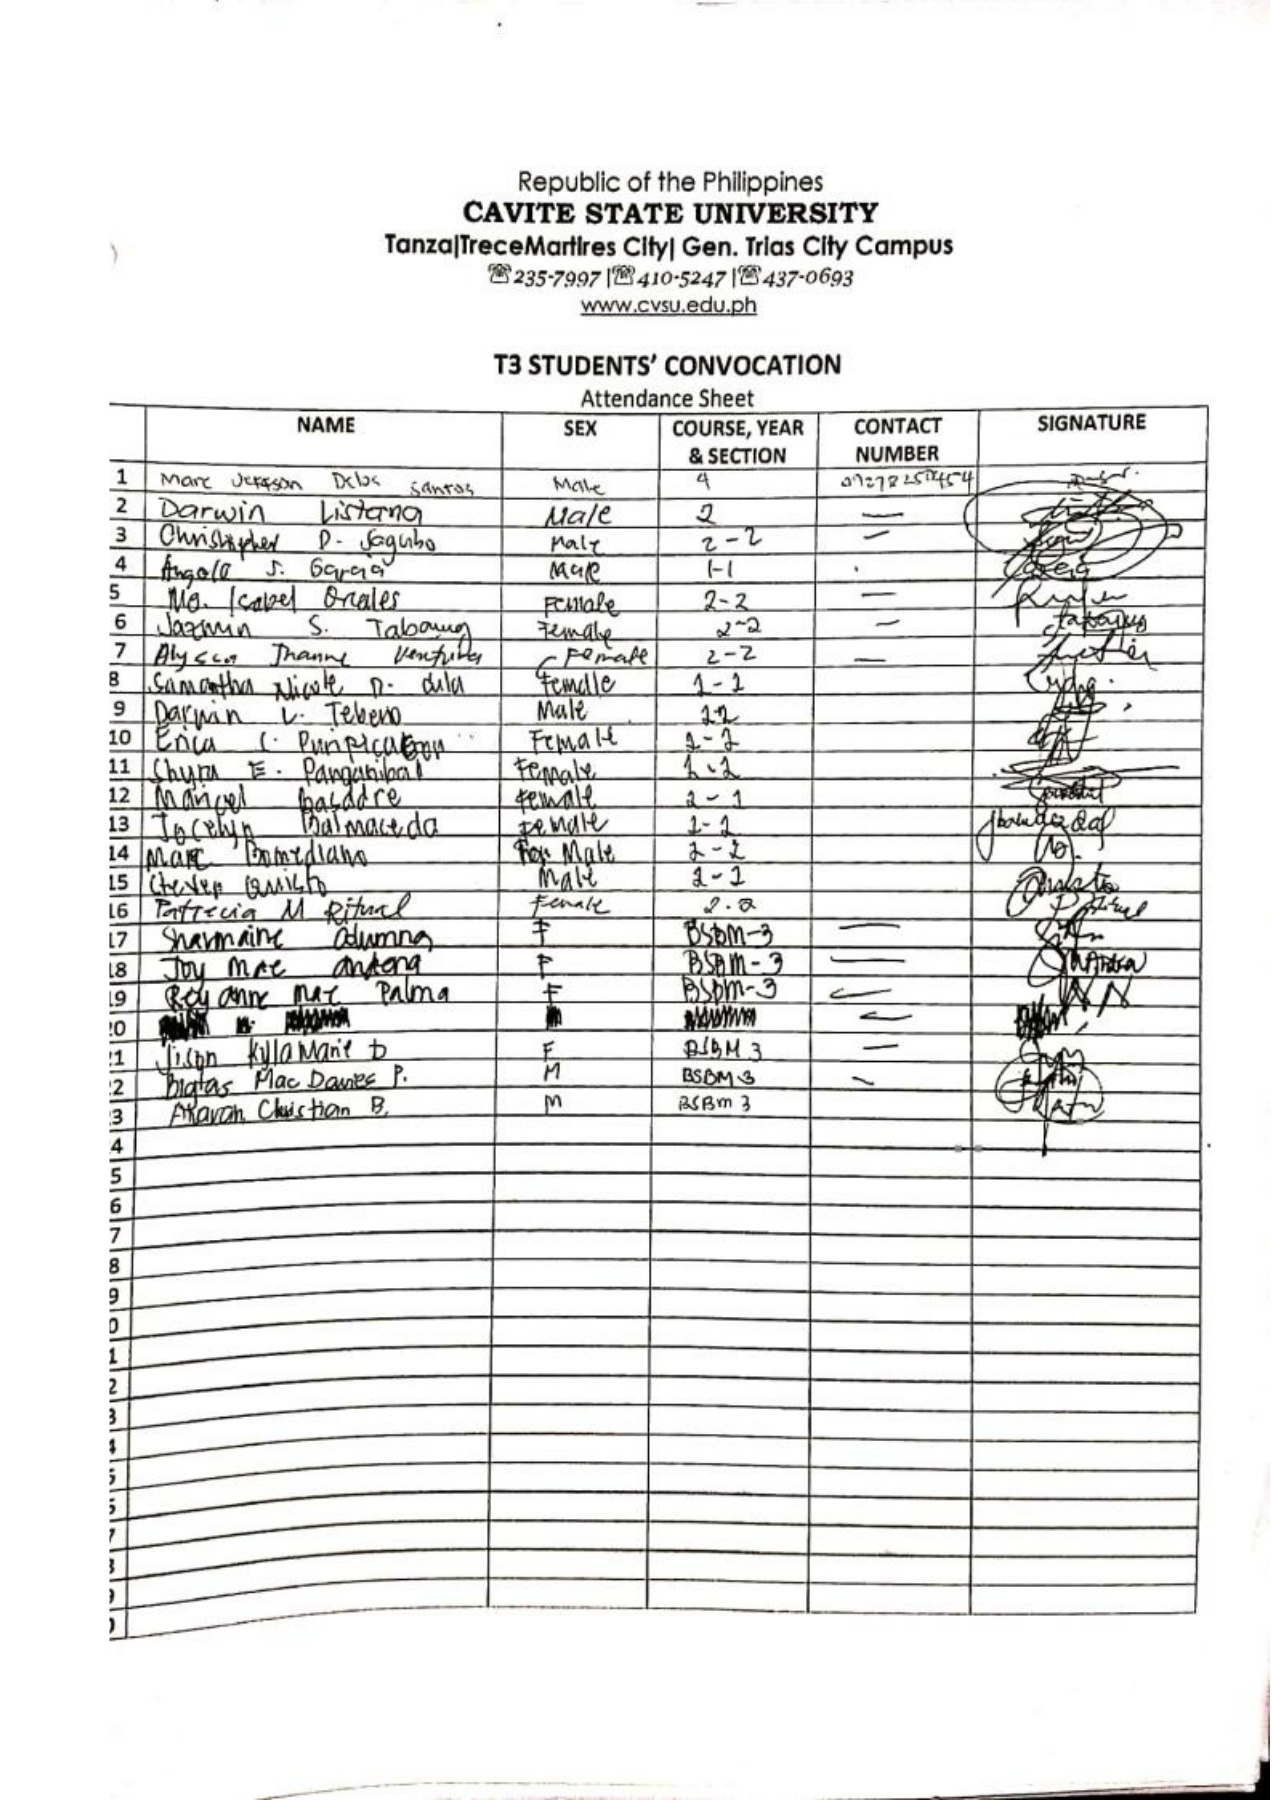 Republic of the Philippines
CAVITE STATE UNIVERSITY
Tanza|TreceMartires City| Gen. Trias City Campus
☏235-7997 |☏410-5247 |☏437-0693
www.cvsu.edu.ph
T3 STUDENTS' CONVOCATION
Attendance Sheet
NAME SEX COURSE, YEAR & SECTION CONTACT NUMBER SIGNATURE
1 Marc Jefferson Delos Santos Male 4
2 Darwin Listana Male 2 —
3 Christopher D. Sagubo Male 2-2 —
4 Angelo S. Garcia Male 1-1
5 Ma. Isabel Ornales Female 2-2 —
6 Jazmin S. Female 2-2 —
7 Alyssa Jhanne Ventura Female 2-2 —
8 Samantha Nicole D. dula female 2-2
9 Darwin V. Tebeno Male 22
10 Erica C. Purificacion Female 2-2
11 Shyra E. Panganiban Female 2-2
12 Maricel female 2-2
13 Jocelyn Balmaceda Female 2-2
14 Marc Bomediano Male 2-2
15 Steven Male 2-2
16 Patrecia M Ritual Female 2-2
17 Sharmaine F BSBM-3 —
18 Joy Mae F BSBM-3 —
19 anne mae Palma F BSBM-3 —
20 —
21 Jison Kyla Marie D F BSBM 3 —
22 Bigtas Mac Davies P. M BSBM 3 —
23 Christian B. M BSBm 3
4
5
6
7
8
9
0
1
2
3
4
5
6
7
8
9
0